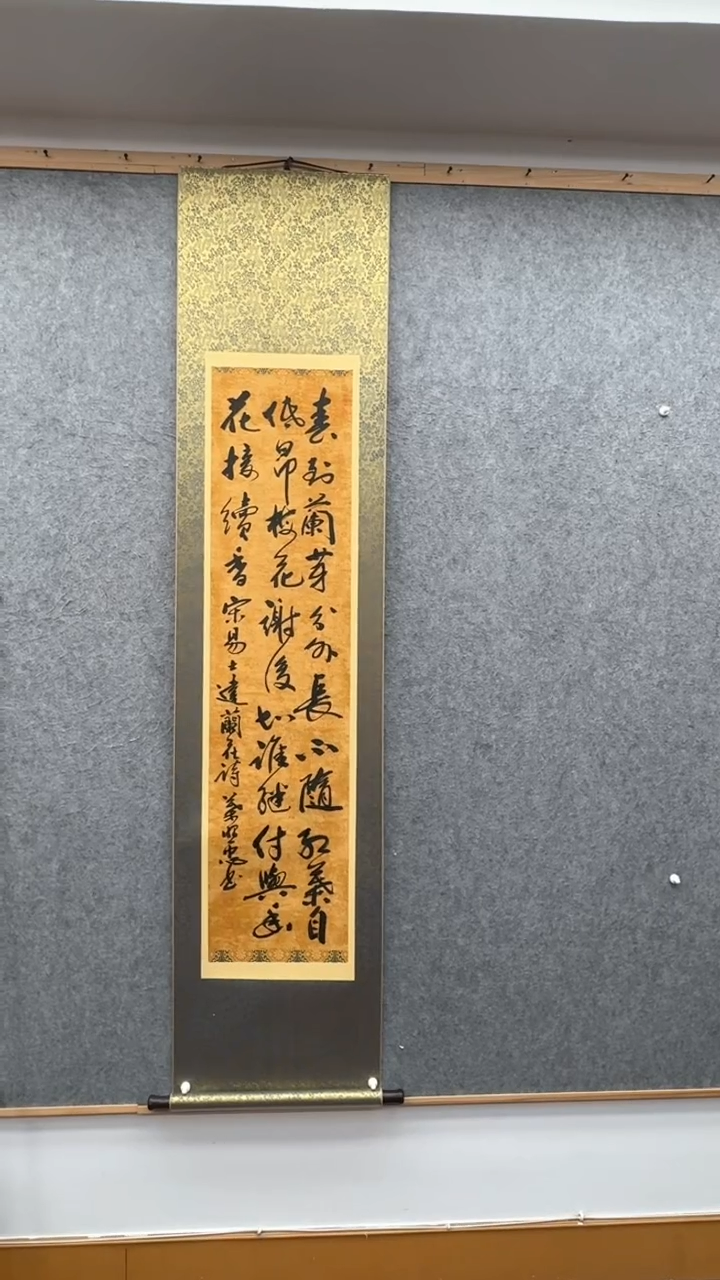 春到蘭芽分外長不隨紅葉自
低昂梅花謝後知誰繼付與幽
花接續香 宋易士達蘭花詩 書